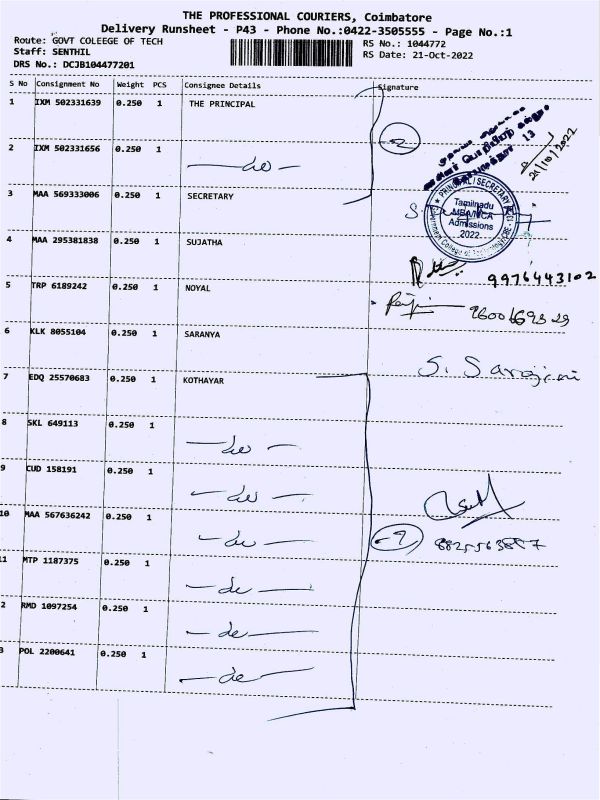 THE PROFESSIONAL COURIERS, Coimbatore
Delivery Runsheet - P43 - Phone No.:0422-3505555 - Page No.:1
Route: GOVT COLEEGE OF TECH
RS No.: 1044772
Staff: SENTHIL
RS Date: 21-Oct-2022
DRS No.: DCJB104477201
S No Consignment No Weight PCS Consignee Details Signature
1 IXM 502331639 0.250 1 THE PRINCIPAL
2
21/10/2022
13
2 IXM 502331656 0.250 1 — do —
3 MAA 569333006 0.250 1 SECRETARY
PRINCIPAL/SECRETARY
Tamilnadu
MBA/MCA
Admissions
2022
4 MAA 295381838 0.250 1 SUJATHA
9976443102
5 TRP 6189242 0.250 1 NOYAL
6 KLK 8055104 0.250 1 SARANYA
S. Sarojini
7 EDQ 25570683 0.250 1 KOTHAYAR
8 SKL 649113 0.250 1 — do —
9 CUD 158191 0.250 1 — do —
10 MAA 567636242 0.250 1 — do —
11 MTP 1187375 0.250 1 — do —
2 RMD 1097254 0.250 1 — do —
3 POL 2200641 0.250 1 — do —